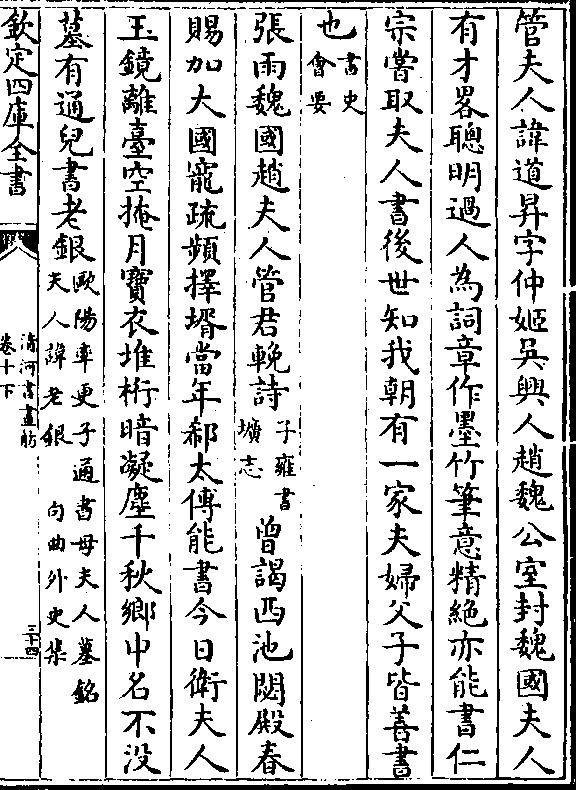 管夫人諱道昇字仲姬吳興人趙魏公室封魏國夫人
有才畧聰明過人為詞章作墨竹筆意精絶亦能書仁
宗嘗取夫人書後世知我朝有一家夫婦父子皆善書
也書史會要
張雨魏國趙夫人管君輓詩子雍書壙志曾謁西池閟殿春
賜加大國寵疏頻擇壻當年郗太傅能書今日衛夫人
玉鏡離臺空掩月寶衣堆桁暗凝塵千秋鄉中名不没
墓有通兒書老銀歐陽率更子通書母夫人墓銘夫人諱老銀 句曲外史集
欽定四庫全書
清河書畫舫
卷十下
三十四